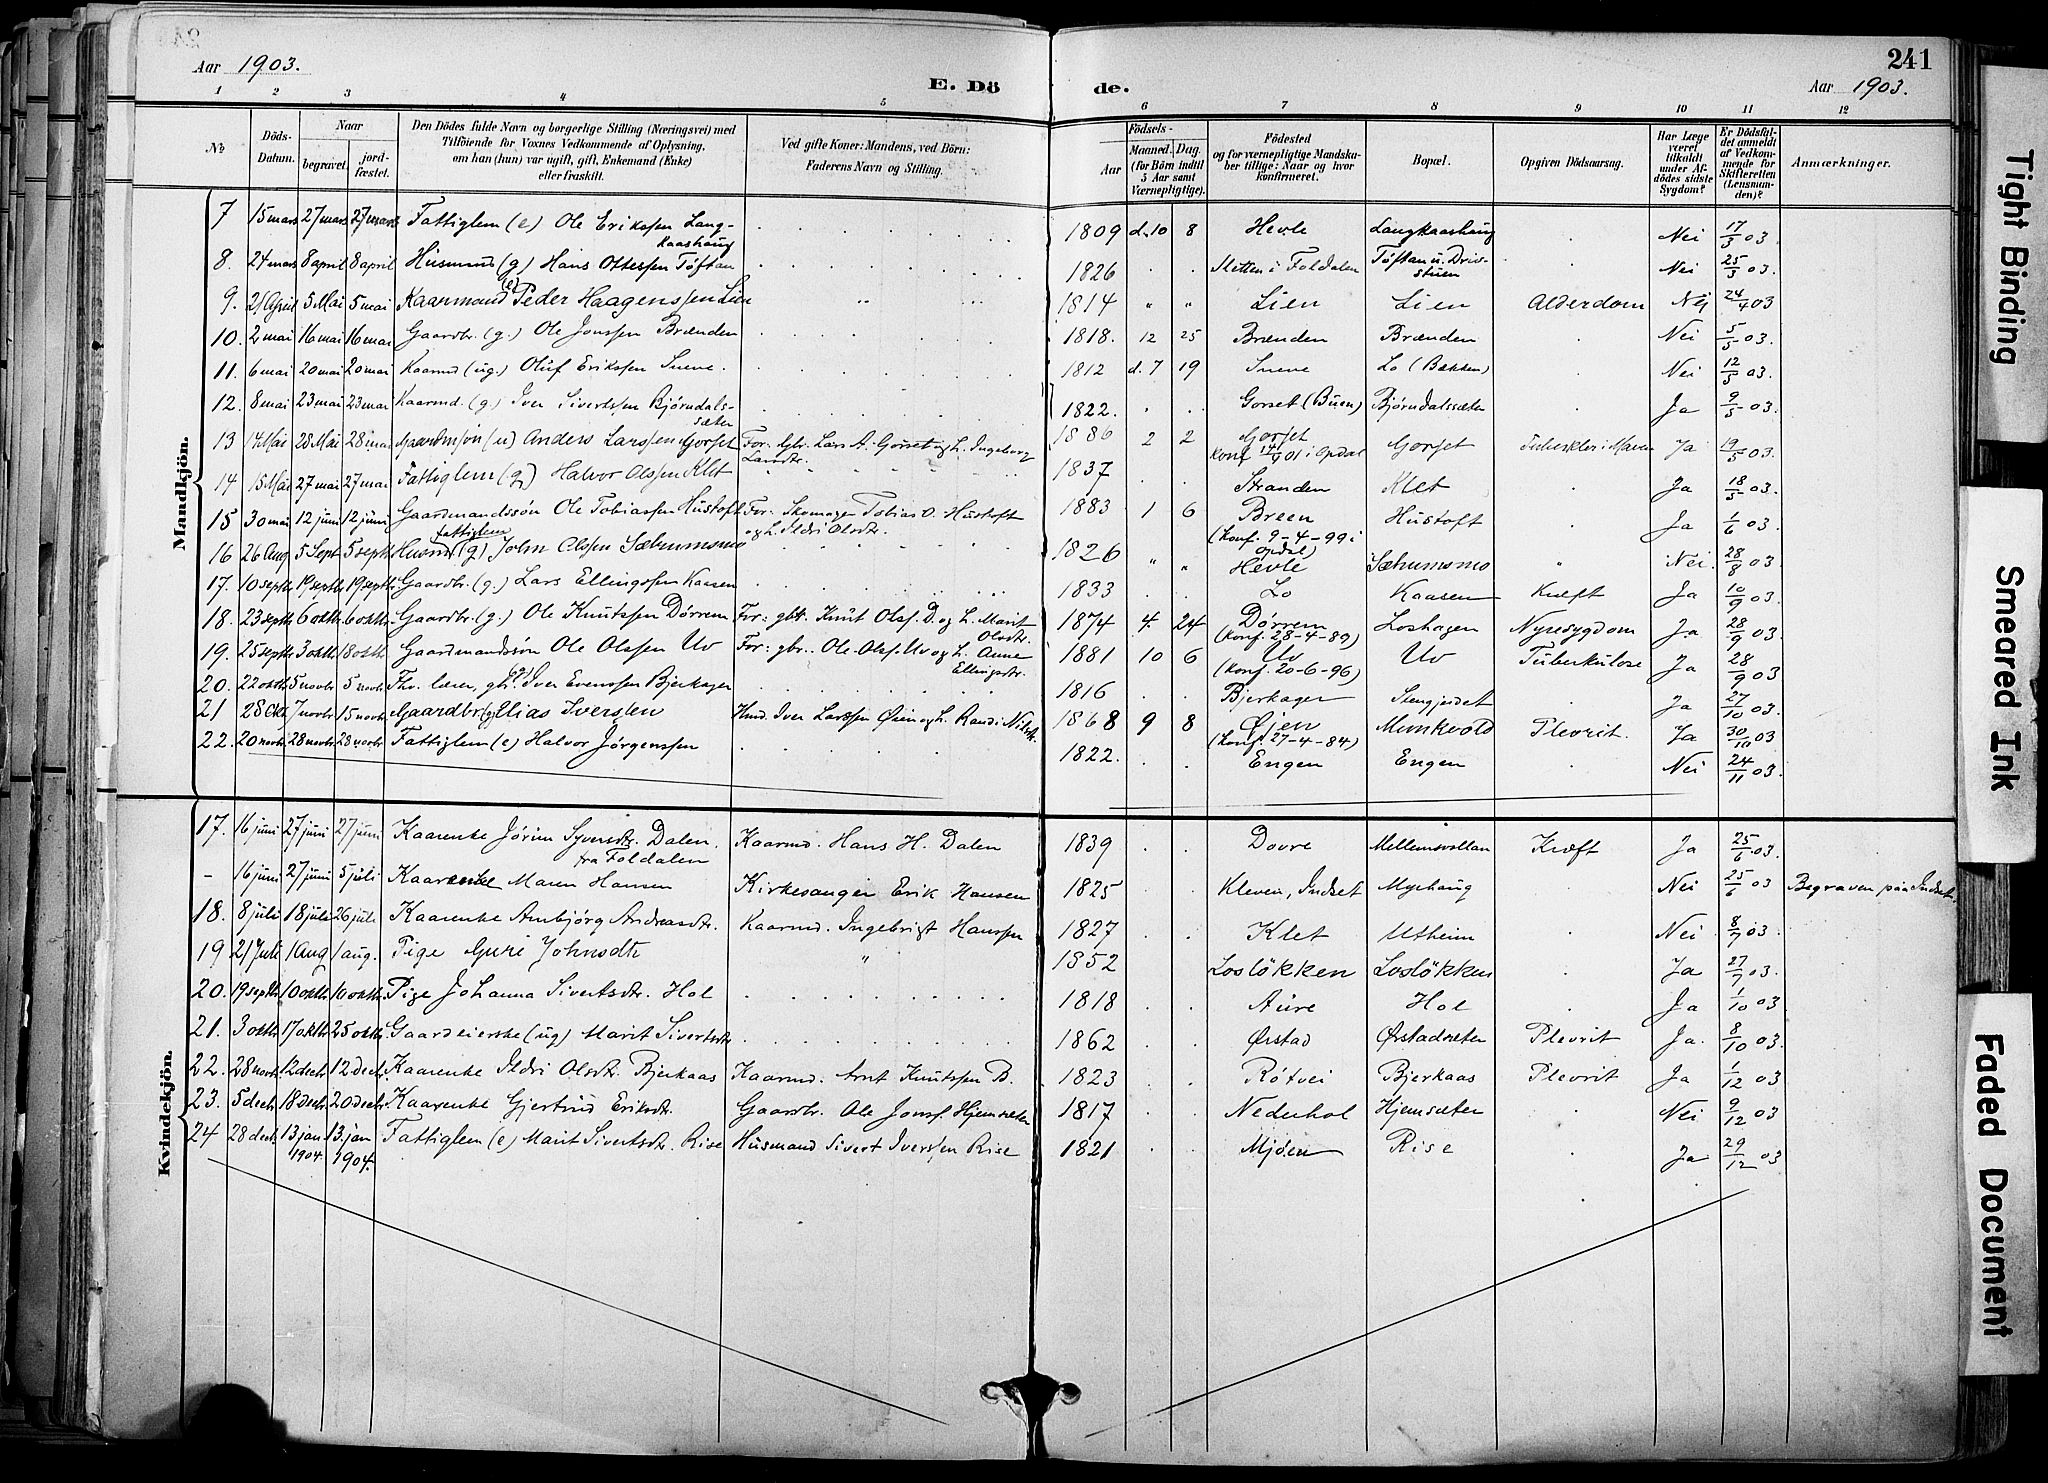 241
Aar 1903.
E. Döde.
Aar 1903.
1 2 3 4 5 6 7 8 9 10 11 12
№
Döds-Datum.
Naar
begravet.
jord-fæstet.
Den Dödes fulde Navn og borgerlige Stilling (Næringsvei) med
Tilföiende for Voxnes Vedkommende af Oplysning,
om han (hun) var ugift, gift, Enkemand (Enke)
eller fraskilt.
Ved gifte Koner: Mandens, ved Börn:
Faderens Navn og Stilling.
Födsels-
Aar
Maaned. Dag.
(for Börn indtil
5 Aar samt
Værnepligtige).
Födested
og for værnepligtige Mandska-
ber tillige: Naar og hvor
konfirmeret.
Bopæl.
Opgiven Dödsaarsag.
Har Læge
været
tilkaldt
under Af-
dödes sidste
Sygdom?
Er Dödsfal-
det anmeldt
af Vedkom-
mende for
Skifteretten
(Lensman-
den)?
Anmærkninger.
Mandkjön.
7 15 mars 27 mars 27 mars Fattiglem (e) Ole Erikssen Lang-kaashaug 1809 d. 10 8 Hevle Langkaashaug Nei 17/3 03
8. 24 mars 8 april 8 april Husmand (g) Hans Ottessen Tøftan 1826 Sletten i Foldalen Tøftan u. Driv-stuen Nei 25/3 03.
9. 21 April 5 Mai 5 mai Kaarmand (e) Peder Haagenssen Lien 1814 " " Lien Lien Alderdom Nej 24/4 03
10. 2 mai 16 mai 16 mai Gaardbr. (g.) Ole Jonssen Brænden 1818. 12 25 Brænden Brænden Nei 5/5 03.
11. 6 mai 20 mai 20 mai Kaarmd (ug.) Oluf Erikssen Sneve. 1812 d. 7 19 Sneve Lo (Bækken) Nei 12/5 03.
12. 8 mai 23 mai 23 mai Kaarmd. (g.) Iver Sivertssen Bjørndals-sæter 1822. Gorset (Buen) Bjørndalssæter Ja 9/5 03.
13 14 Mai 28 Mai 28 mai Gaardmsøn (u) Anders Larssen Gorset For: Gbr. Lars A. Gorset og h. Ingeborg Larsdtr. 1886 2 2 Gorset Konf. 1901 i Opdal Gorset Ja 19/5 03.
14 15 Mai 27 mai 27 mai Fattiglem (g) Halvor Olssen Klet 1837 Stranden Klet Ja 18/5 03.
15 30 mai 12 juni 12 juni Gaardmandssøn Ole Tobiassen Hustoft For: Skomager Tobias O. Hustoft og h. Ildri Olsdtr. 1883 1 6 Breen (Konf. 9-4-99 i Opdal) Hustoft Ja 1/6 03
16 26 Aug 5 Sept 5 septb Husmd fattiglem (g) John Olssen Sæhumsmo 1826 " " Hevle Sæhumsmo " Nei 28/8 03.
17. 10 septb 19 septb 19 septb. Gaardbr. (g.) Lars Ellingssen Kaasen 1833 Lo Kaasen Kræft Ja 10/9 03.
18. 23 septb 6 oktb. 6 oktb. Gaardbr. (g.) Ole Knutssen Dørrem For: gbr. Knut Olsf. D. og h. Marit Olsdtr. 1874 4. 24 Dørrem (Konf. 28-4-89) Loshagen Nyresygdom Ja 28/9 03.
19. 25 septb 3 oktb 18 oktb. Gaardmandssøn Ole Olssen Uv For: gbr. Ole Olsf. Uv og h. Anne Ellingsdtr. 1881 10 6 Uv (Konf. 20-6-96) Uv Tuberkulose Ja 28/9 03.
20. 22 oktb 5 novbr 5 novbr. Fhv. lærer, gb. Iver Evenssen Bjerkager 1816 Bjerkager Stengjerdet Ja 27/10 03.
21 28 Okt 7 novbr 15 novbr Gaardbr (g) Elias Iversen Hmd. Iver Larssen Øien og h. Randi 1868 9 8 Øjen (Konf. 27-4-84) Munkvold Plevrit. Ja 30/10 03
22. 20 novb. 28 novb. 28 novb. Fattiglem (e) Halvor Jørgenssen 1822. Engen Engen Nei 24/11 03.
Kvindekjön.
17. 16 juni 27 juni 27 juni Kaarenke Jørin Syversdtr. Dalen. fra Foldalen Kaarmd. Hans H. Dalen 1839 Dovre Mellemsvollan Kræft Ja 25/6 03.
- 16 juni 27 juni 5 juli Kaarenke Maren Hansen Kirkesanger Erik Hansen 1825 Kleven, Indset Myrhaug Nei 25/6 03 Begraven paa Indset.
18. 8 juli 18 juli 26 juli Kaarenke Anbjørg Andreasdtr. Kaarmd. Ingebrigt Hanssen 1827 Klet Utheim Nei 8/7 03.
19 21 Juli 1 Aug 1 aug. Pige Guri Johnsdtr " 1852 Losløkken Losløkken Ja 27/7 03.
20. 19 septb. 10 oktb. 10 oktb. Pige Johanna Sivertsdtr. Hol 1818 Aure Hol Ja 1/10 03
21. 3 oktb. 17 oktb 25 oktb. Gaardeierske (ug) Marit Sivertsdtr 1862 Ørstad Ørstadsæter Plevrit Ja. 8/10 03.
22. 28 novb. 12 decb. 12 decb. Kaarenke Ildri Olsdtr. Bjerkaas Kaarmd. Arnt Knutssen B. 1823 Røtvei Bjerkaas Plevrit Ja 1/12 03
23. 5 decb. 18 decb 20 decb. Kaarenke Gjertrud Eriksdtr. Gaardbr. Ole Jonsf. Hjemsæter 1817 Nederhol Hjemsæter Nei 9/12 03
24 28 decb. 13 jan 1904. 13. jan 1904. Fattiglem (e) Marit Sivertsdtr. Rise Husmand Sivert Iverssen Rise 1821 Mjøen Rise Ja 29/12 03
Tight Binding
Smeared Ink
Faded Document